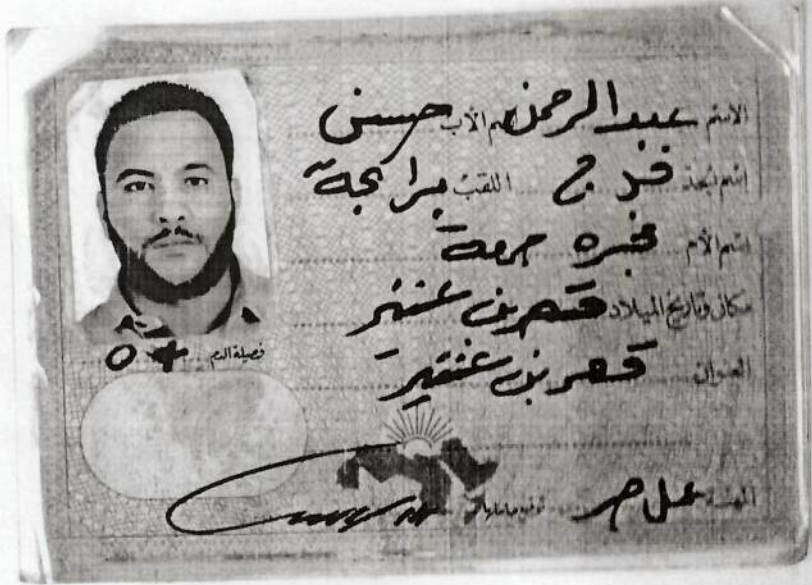 الاسم عبد الرحمن اسم الأب حسن
اسم الجد فرج اللقب
اسم الأم جمعة
مكان وتاريخ الميلاد قصر بن غشير
العنوان قصر بن غشير
فصيلة الدم O+
المهنة عمل حر توقيع حاملها